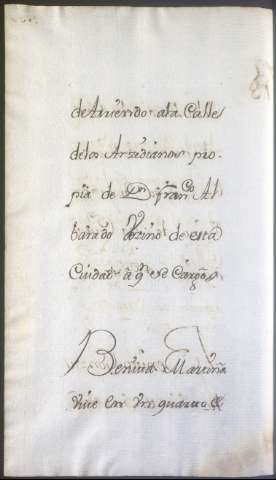 de Auerdo ala Calle
delos Arzedianos pro-
pia de Dn Franco Al
barado Vezino de esta
Ciudad â qe se Cargo
Benius Martina
viue en